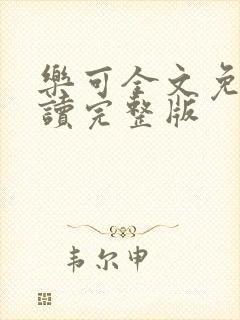 樂可全文免
讀完整版
韦尔申